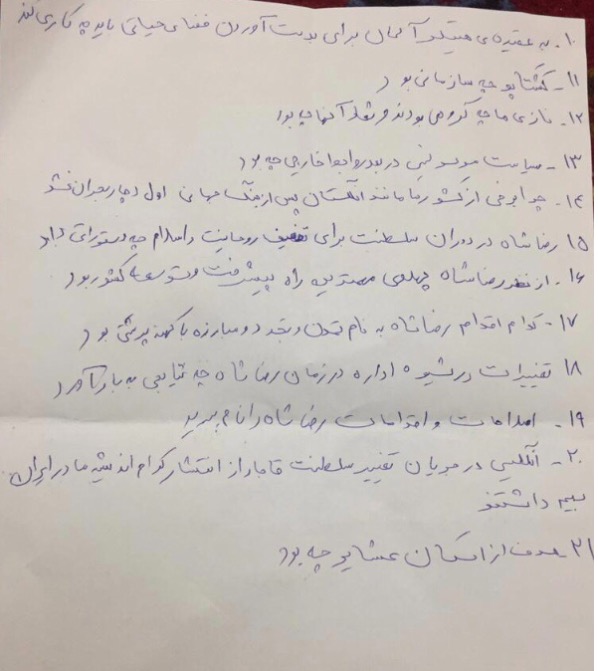 ۱۰- به عقیده‌ی هیتلر آلمان برای بدست آوردن فضای حیاتی باید چه کاری کند
۱۱- گشتاپو چه سازمانی بود
۱۲- نازی ها چه گروهی بودند و شعار آنها چه بود
۱۳- سیاست موسولینی در بعد روابط خارجی چه بود
۱۴- چرا برخی از کشورها مانند انگلستان پس از جنگ جهانی اول دچار بحران نشد
۱۵ رضا شاه در دوران سلطنت برای تضعیف روحانیت و اسلام چه دستوراتی داد
۱۶- از نظر رضا شاه پهلوی مهمترین راه پیشرفت و توسعه کشور بود
۱۷- کدام اقدام رضا شاه به نام تمدن و تجدد و مبارزه با کهنه پرستی بود
۱۸ تغییرات در شیوه اداره در زمان رضا شاه چه نتایجی به بار آورد
۱۹- اصلاحات و اقدامات رضا شاه را نام ببرید
۲۰- انگلیس در جریان تغییر سلطنت قاجار از انتشار کدام اندیشه ها در ایران
بیم داشتند
۲۱- هدف از اسکان عشایر چه بود